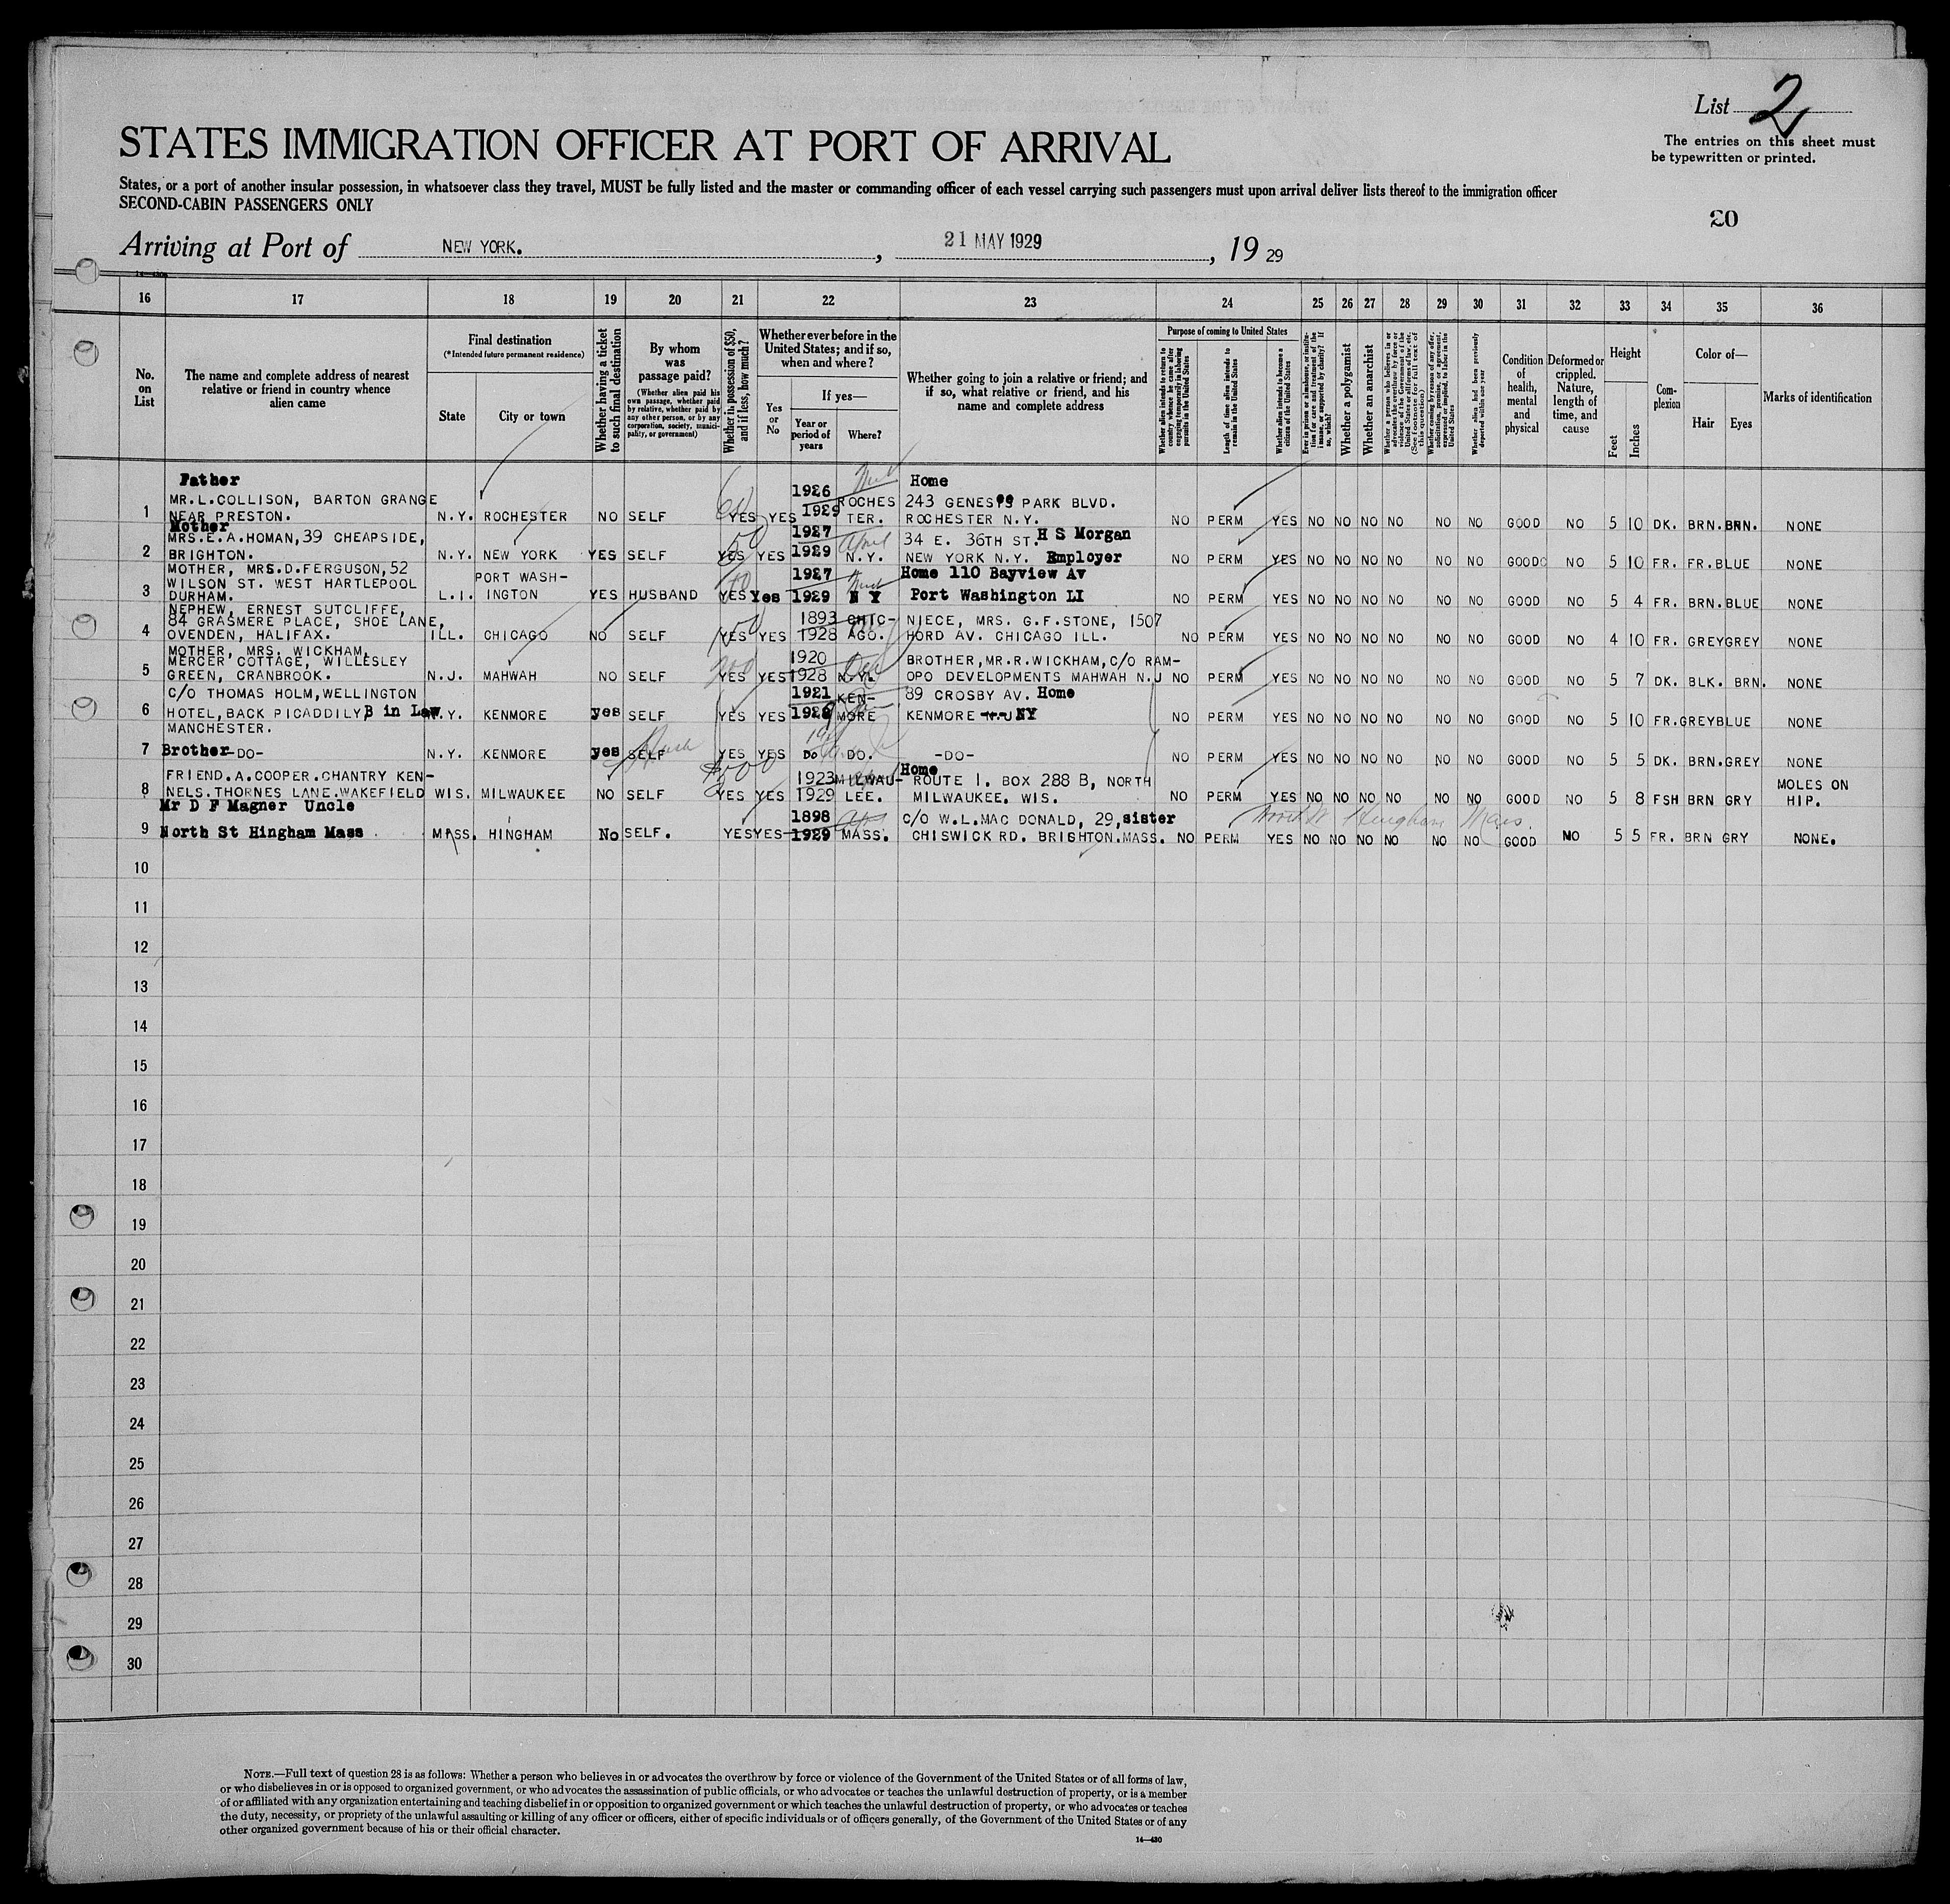 List 2
The entries on this sheet must
be typewritten or printed.
STATES IMMIGRATION OFFICER AT PORT OF ARRIVAL
States, or a port of another insular possession, in whatsoever class they travel, MUST be fully listed and the master or commanding officer of each vessel carrying such passengers must upon arrival deliver lists thereof to the immigration officer
SECOND-CABIN PASSENGERS ONLY
20
Arriving at Port of NEW YORK. , 21 MAY 1929 , 19 29
16 17 18 19 20 21 22 23 24 25 26 27 28 29 30 31 32 33 34 35 36
No. on List
The name and complete address of nearest relative or friend in country whence alien came
Final destination
(*Intended future permanent residence)
State
City or town
Whether having a ticket to such final destination
By whom was passage paid?
(Whether alien paid his own passage, whether paid by relative, whether paid by any other person, or by any corporation, society, municipality, or government)
Whether in possession of $50, and if less, how much?
Whether ever before in the United States; and if so, when and where?
Yes or No
If yes—
Year or period of years
Where?
Whether going to join a relative or friend; and if so, what relative or friend, and his name and complete address
Purpose of coming to United States
Whether alien intends to return to country whence he came after engaging temporarily in laboring pursuits in the United States
Length of time alien intends to remain in the United States
Whether alien intends to become a citizen of the United States
Whether a polygamist
Whether an anarchist
Whether alien had been previously deported within one year
Condition of health, mental and physical
Deformed or crippled. Nature, length of time, and cause
Height
Feet
Inches
Complexion
Color of—
Hair
Eyes
Marks of identification
Father Home
MR.L.COLLISON, BARTON GRANGE 1926 ROCHES 243 GENESee PARK BLVD.
1 NEAR PRESTON. N.Y. ROCHESTER NO SELF YES YES 1929 TER. ROCHESTER N.Y. NO PERM YES NO NO NO NO NO NO GOOD NO 5 10 DK. BRN. BRN. NONE
Mother
MRS.E.A.HOMAN,39 CHEAPSIDE, 1927 April 34 E. 36TH ST. H S Morgan
2 BRIGHTON. N.Y. NEW YORK YES SELF YES YES 1929 N.Y. NEW YORK N.Y. Employer NO PERM YES NO NO NO NO NO NO GOOD NO 5 10 FR. FR. BLUE NONE
MOTHER, MRS.D.FERGUSON,52 PORT WASH- 1927 Home 110 Bayview Av
WILSON ST. WEST HARTLEPOOL
3 DURHAM. L.I. INGTON YES HUSBAND YES Yes 1929 N Y Port Washington LI NO PERM YES NO NO NO NO NO NO GOOD NO 5 4 FR. BRN. BLUE NONE
NEPHEW, ERNEST SUTCLIFFE, 1893 CHIC- NIECE, MRS. G.F.STONE, 1507
84 GRASMERE PLACE, SHOE LANE,
4 OVENDEN, HALIFAX. ILL. CHICAGO NO SELF YES YES 1928 AGO. HORD AV. CHICAGO ILL. NO PERM YES NO NO NO NO NO NO GOOD NO 4 10 FR. GREY GREY NONE
MOTHER, MRS. WICKHAM, 1920 BROTHER,MR.R.WICKHAM,C/O RAM-
MERCER COTTAGE, WILLESLEY
5 GREEN, CRANBROOK. N.J. MAHWAH NO SELF 200 YES YES 1928 N.Y. OPO DEVELOPMENTS MAHWAH N.J NO PERM YES NO NO NO NO NO NO GOOD NO 5 7 DK. BLK. BRN. NONE
C/O THOMAS HOLM,WELLINGTON 1921 KEN- 89 CROSBY AV. Home
6 HOTEL,BACK PICADDILY, B in Law N.Y. KENMORE yes SELF YES YES 1928 MORE KENMORE N.J NY NO PERM YES NO NO NO NO NO NO GOOD NO 5 10 FR. GREY BLUE NONE
MANCHESTER.
7 Brother -DO- N.Y. KENMORE yes SELF YES YES DO DO. -DO- NO PERM YES NO NO NO NO NO NO GOOD NO 5 5 DK. BRN. GREY NONE
FRIEND.A.COOPER.CHANTRY KEN- 1923 MILWAU- Home ROUTE 1. BOX 288 B, NORTH MOLES ON
8 NELS.THORNES LANE.WAKEFIELD WIS. MILWAUKEE NO SELF YES YES 1929 LEE. MILWAUKEE. WIS. NO PERM YES NO NO NO NO NO NO GOOD NO 5 8 FSH BRN GRY HIP.
Mr D F Magner Uncle 1898 C/O W.L.MAC DONALD, 29,sister North St Hingham Mass.
9 North St Hingham Mass MASS. HINGHAM No SELF. YES YES 1929 MASS. CHISWICK RD. BRIGHTON.MASS. NO PERM YES NO NO NO NO NO NO GOOD NO 5 5 FR. BRN GRY NONE.
10
11
12
13
14
15
16
17
18
19
20
21
22
23
24
25
26
27
28
29
30
NOTE.—Full text of question 28 is as follows: Whether a person who believes in or advocates the overthrow by force or violence of the Government of the United States or of all forms of law,
or who disbelieves in or is opposed to organized government, or who advocates the assassination of public officials, or who advocates or teaches the unlawful destruction of property, or is a member
of or affiliated with any organization entertaining and teaching disbelief in or opposition to organized government or which teaches the unlawful destruction of property, or who advocates or teaches
the duty, necessity, or propriety of the unlawful assaulting or killing of any officer or officers, either of specific individuals or of officers generally, of the Government of the United States or of any
other organized government because of his or their official character.
14—430